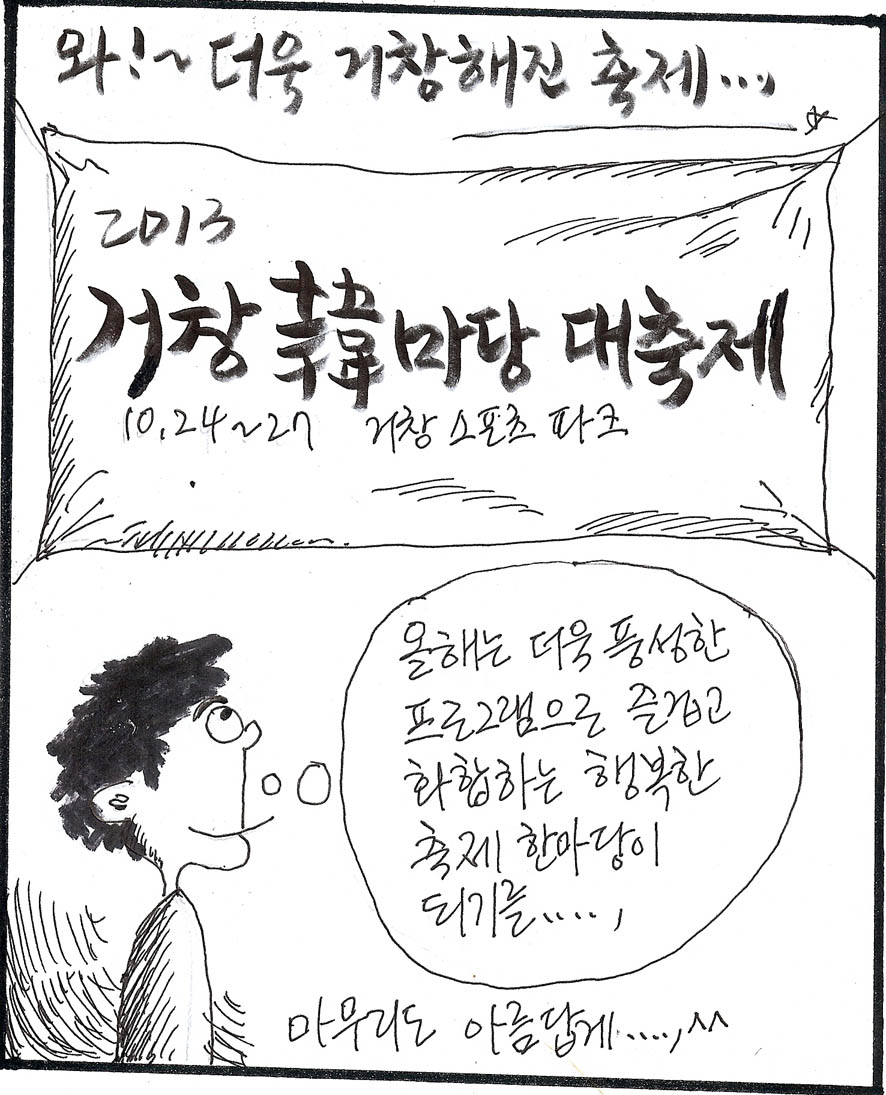 와!~ 더욱 거창해진 축제...,
2013
거창 韓마당 대축제
10.24~27 거창 스포츠 파크
올해는 더욱 풍성한
프로그램으로 즐겁고
화합하는 행복한
축제 한마당이
되기를.....,
마무리도 아름답게....,^^